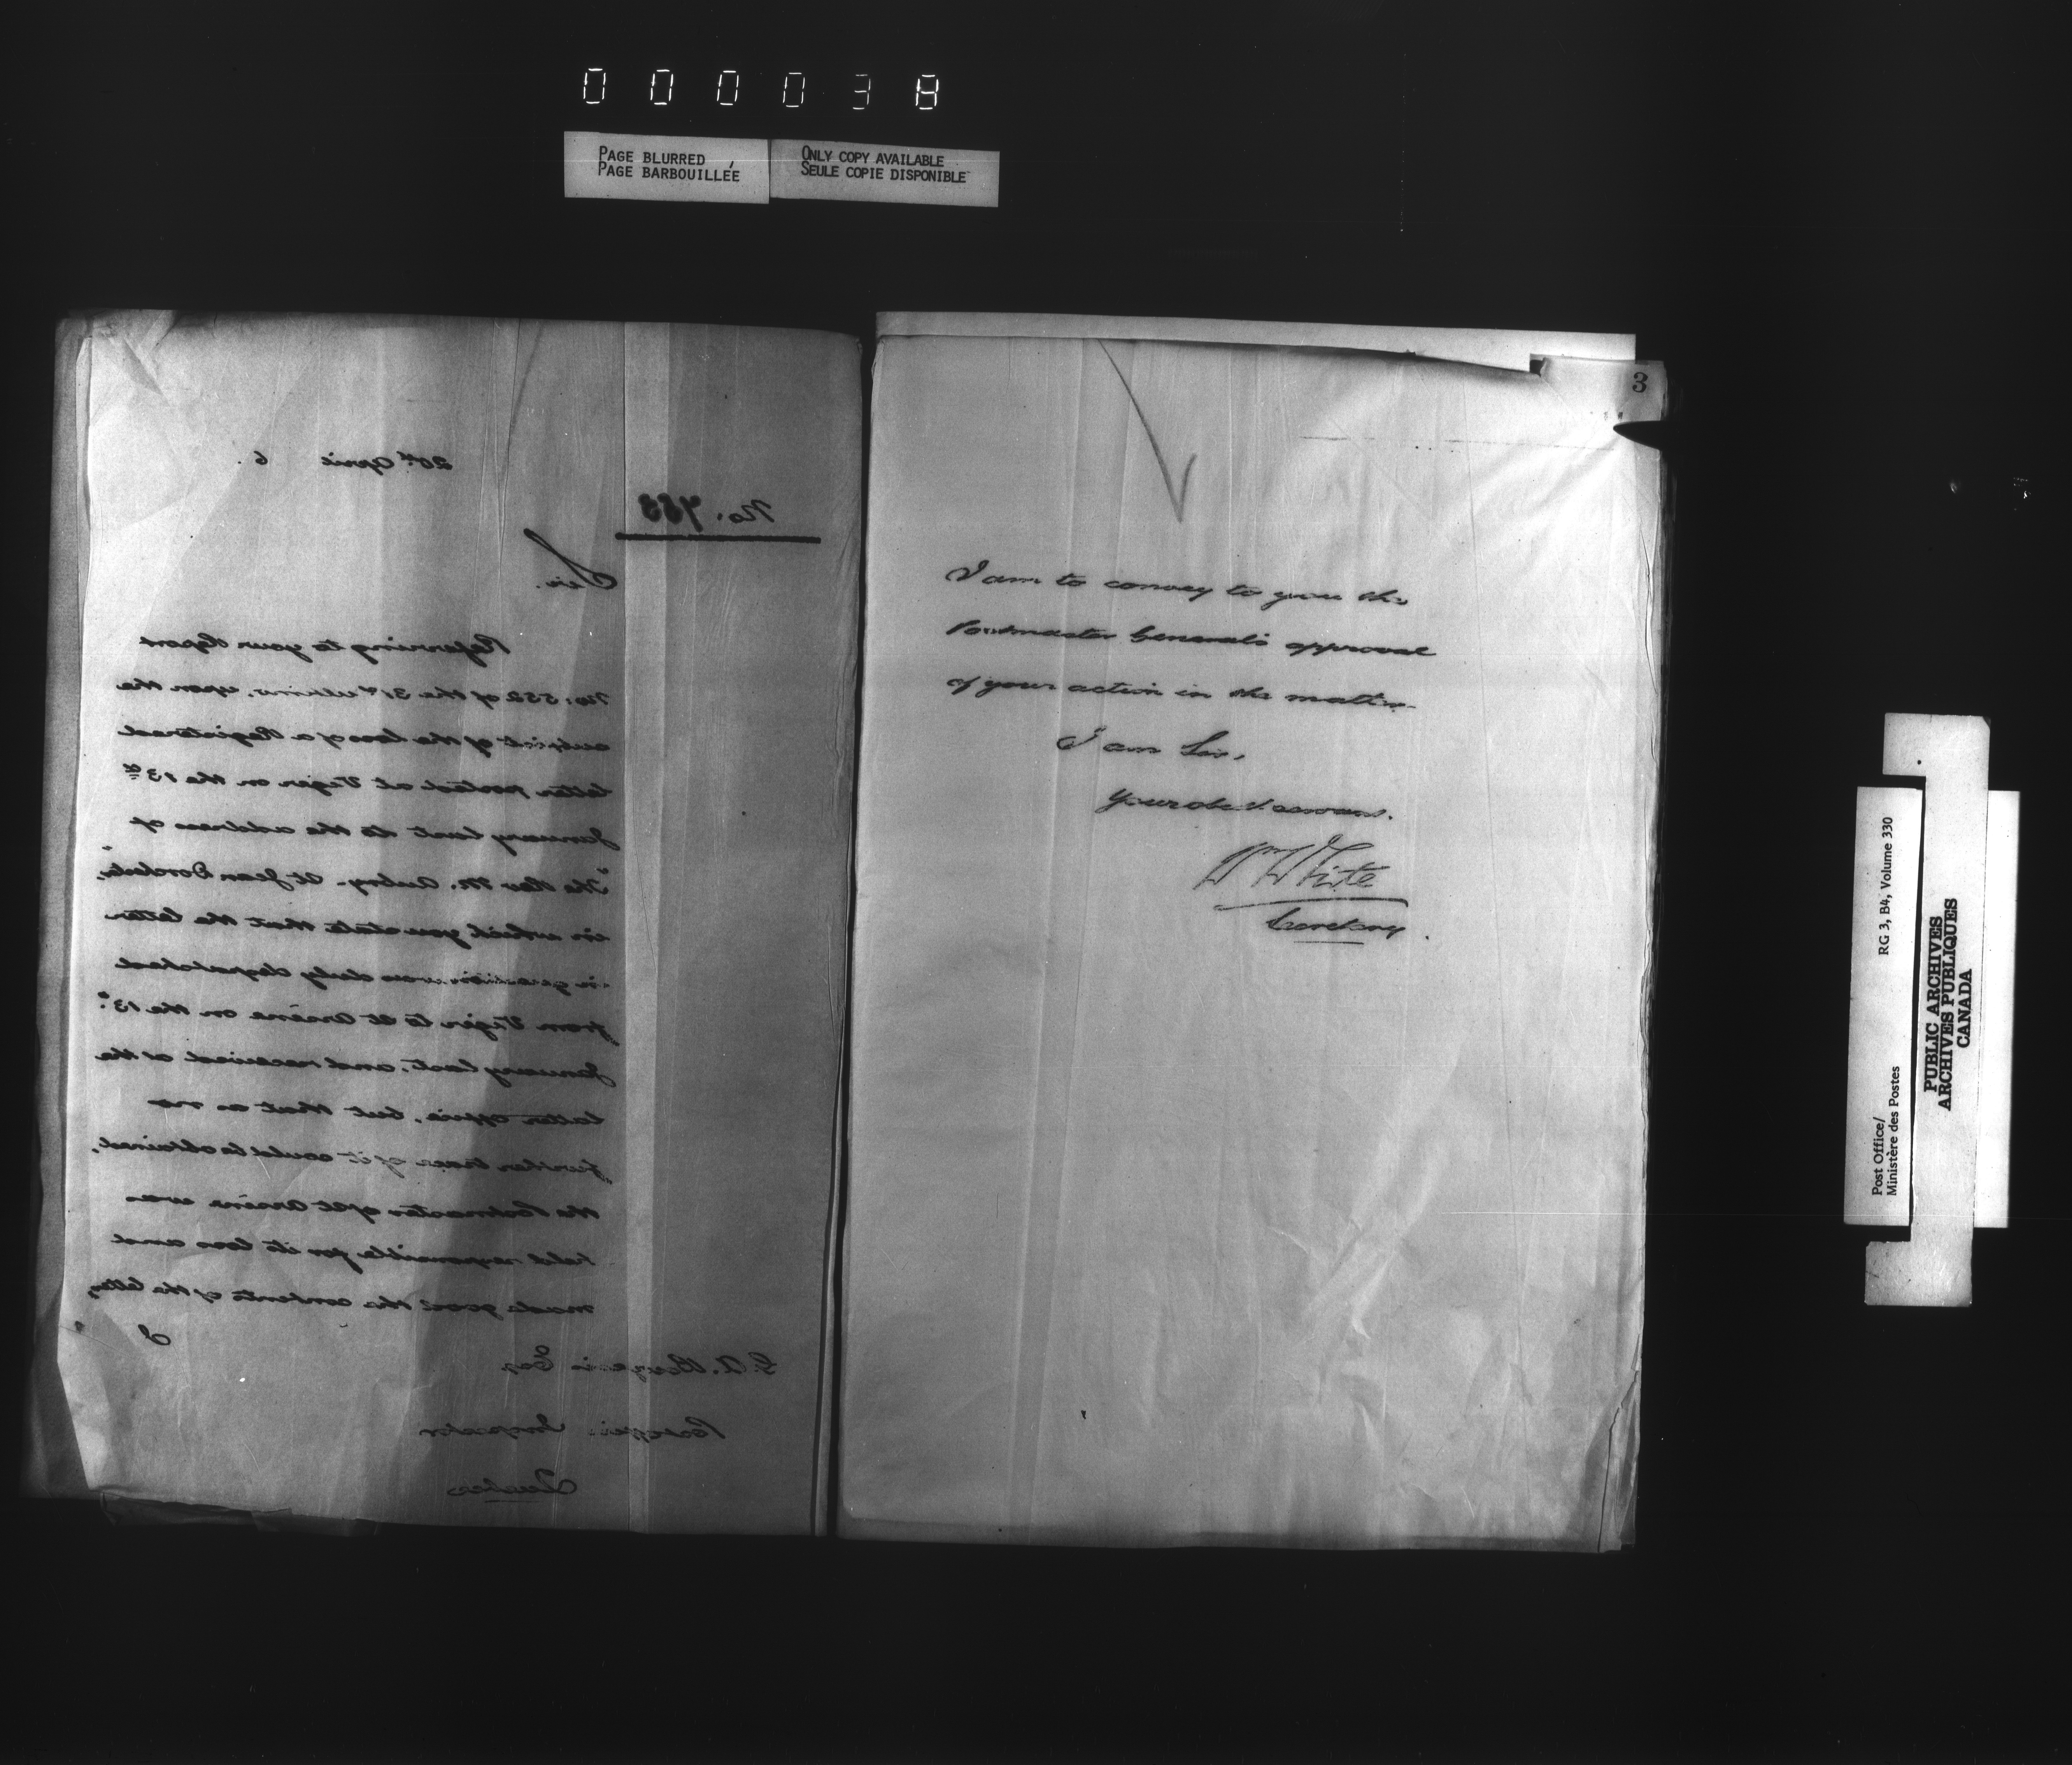 000038
PAGE BLURRED
PAGE BARBOUILLÉE
ONLY COPY AVAILABLE
SEULE COPIE DISPONIBLE
20th April 6.
No. 753
Sir.
Referring to your Report
No: 552 of the 31st ultimo, upon the
subject of the loss of a Registered
letter posted at Viger on the 13th
January last to the address of
"The Rev M. Aubry. St Jean Dorchester,"
in which you state that the letter
in question was duly despatched
from Viger to St Arsène on the 13th
January last, and received at the
latter office, but that as no
further trace of it could be obtained,
the Postmaster of St Arsène was
held responsible for its loss and
made good the contents of the letter,
I
Esq
Postoffice Inspector
Quebec
3
I am to convey to you the
Postmaster General's approval
of your action in the matter.
I am Sir,
Your obedt. servant.
Wm White
Secretary.
Post Office/
Ministère des Postes
RG 3, B4, Volume 330
PUBLIC ARCHIVES
ARCHIVES PUBLIQUES
CANADA